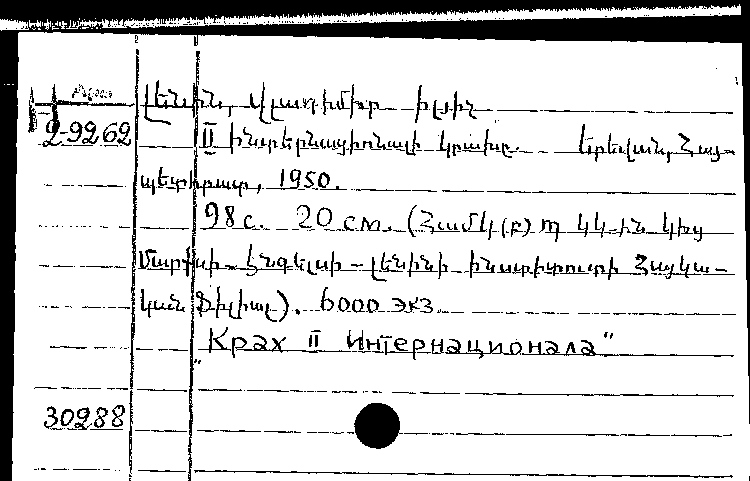 Арм
Լենին, Վլադիմիր Իլյիչ
2-9262
II Ինտերնացիոնալի կրախը. Երեվան, Հայ-
պետհրատ, 1950.
98 с. 20 см. (Համկ(բ)Պ ԿԿ-ին կից
Մարքսի-Էնգելսի-Լենինի ինստիտուտի Հայկա-
կան Ֆիլիալ). 6000 экз.
"Крах II Интернационала"
30288